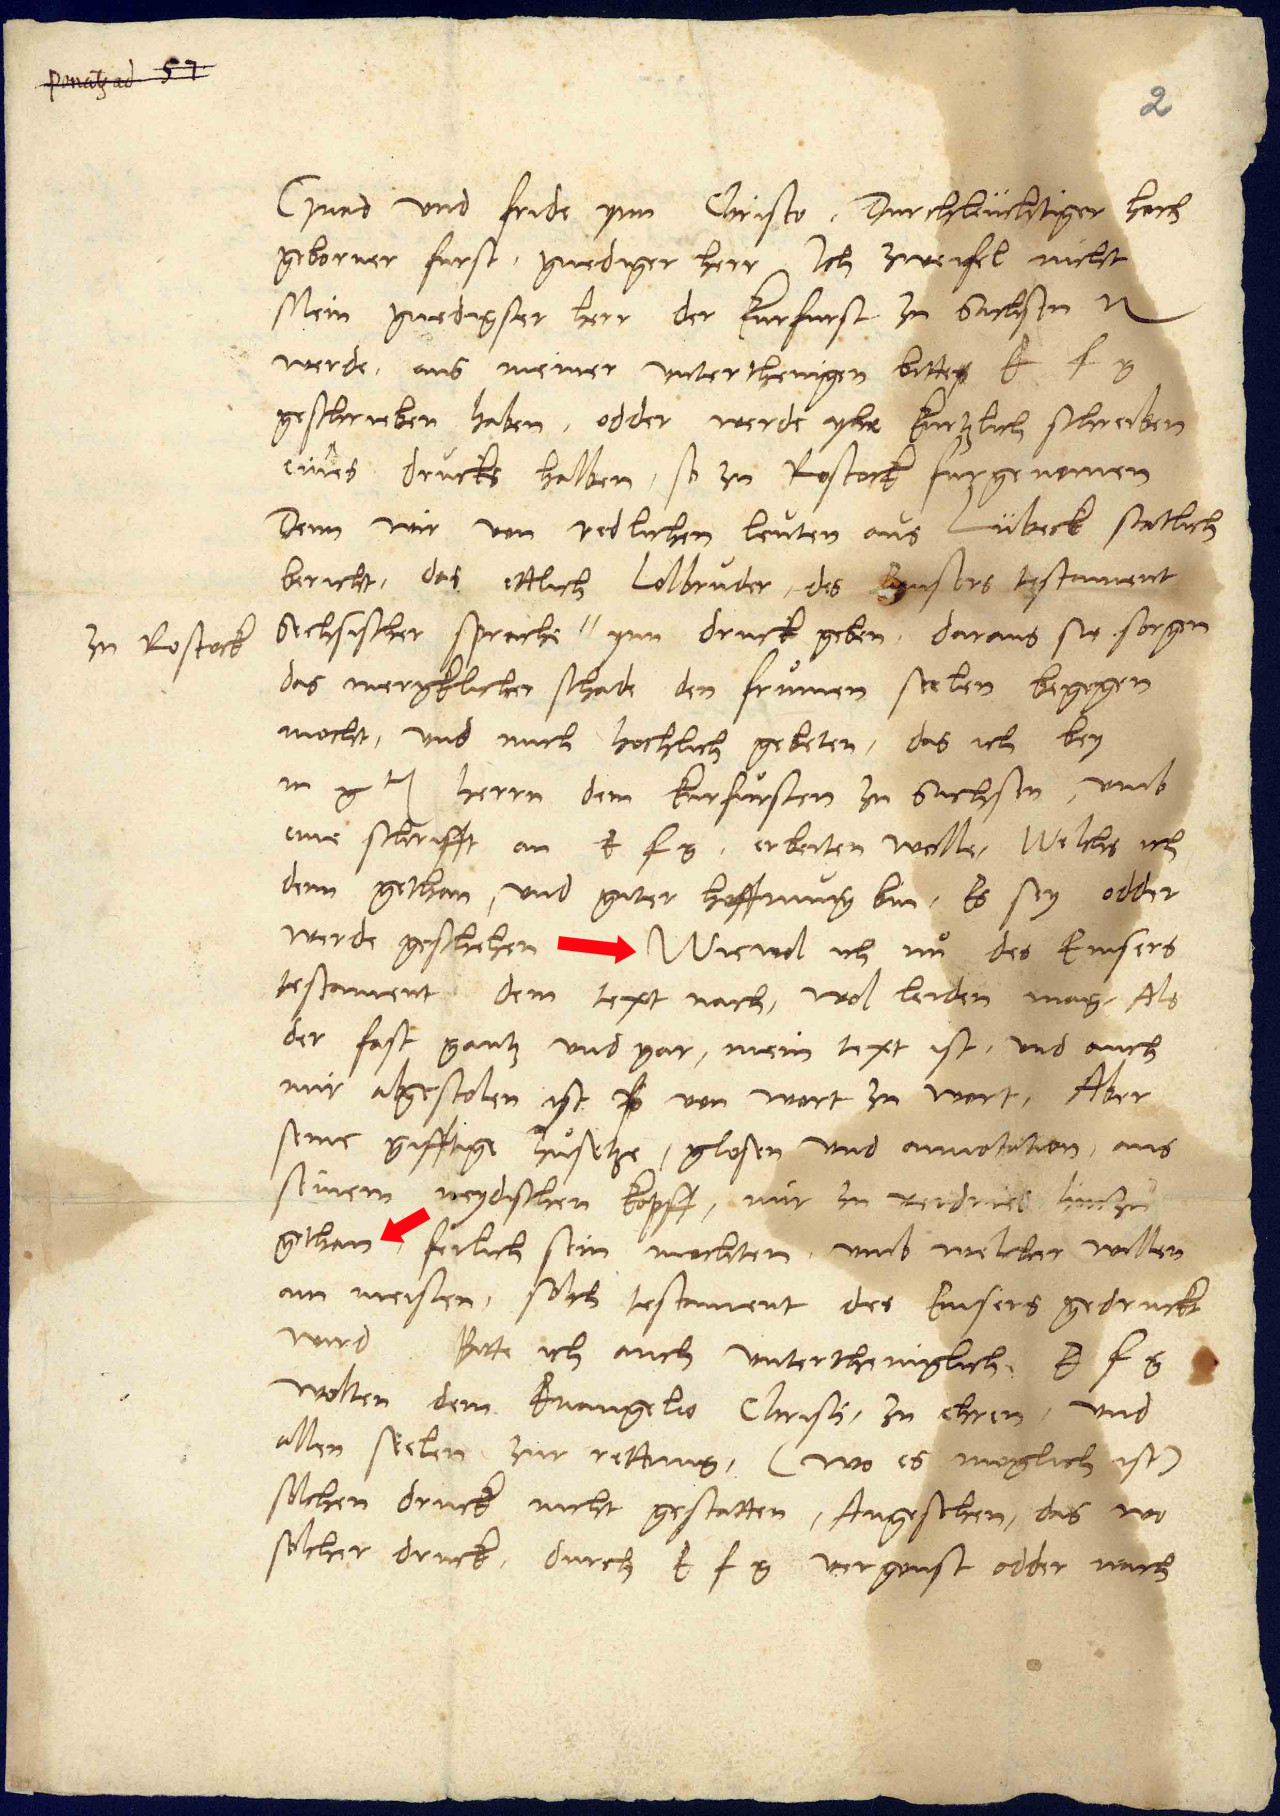 57
2
Gnad vnd fride ynn Christo. Durchleüchtiger hoch
geborner furst, gnediger herr Ich zweifel nicht
Mein gnedigster herr der kurfurst zu Sachsen
werde, aus meiner vnterthenigen bitte, E f g
geschrieben haben, odder werde yhr kurtzlich schreiben
eines drucks halben, so zu Rostock furgenomen
Denn wir von redlichen leuten aus Lübeck statlich
bericht, das ettlich Lolbruder, des Emsers testament
zu Rostock
Sechsischer sprache ynn druck geben, daraus sie sorgen
das mergklicher schade den frumen seelen begegen
mocht, vnd mich hochlich gebeten, das ich bey
m g herrn dem kurfursten zu Sachsen, vmb
eine schrifft an E f g, erbeiten wolle, Welchs ich
denn gethan, vnd guter hoffnung bin, Es sey odder
werde geschehen Wiewol ich nů des Emsers
testament dem text nach, wol leiden mag, Als
der fast gantz vnd gar, mein text ist, vnd auch
mir abgestolen ist von wort zu wort, Aber
seine gifftige zůsetze, glosen vnd annotation, aus
seinem neydischen kopff, mir zu verdries hinzu
gethan, ferlich sein mochten, vmb welcher willen
am meisten, solch testament des Emsers gedruckt
wird Bitte ich auch vntertheniglich, E f g
wolten dem Euangelio Christi, zu ehren, vnd
allen seelen zur rettung, (wo es muglich ist)
solchen druck nicht gestatten, Angesehen, das wo
solcher druck, durch E f g vergonst odder nach